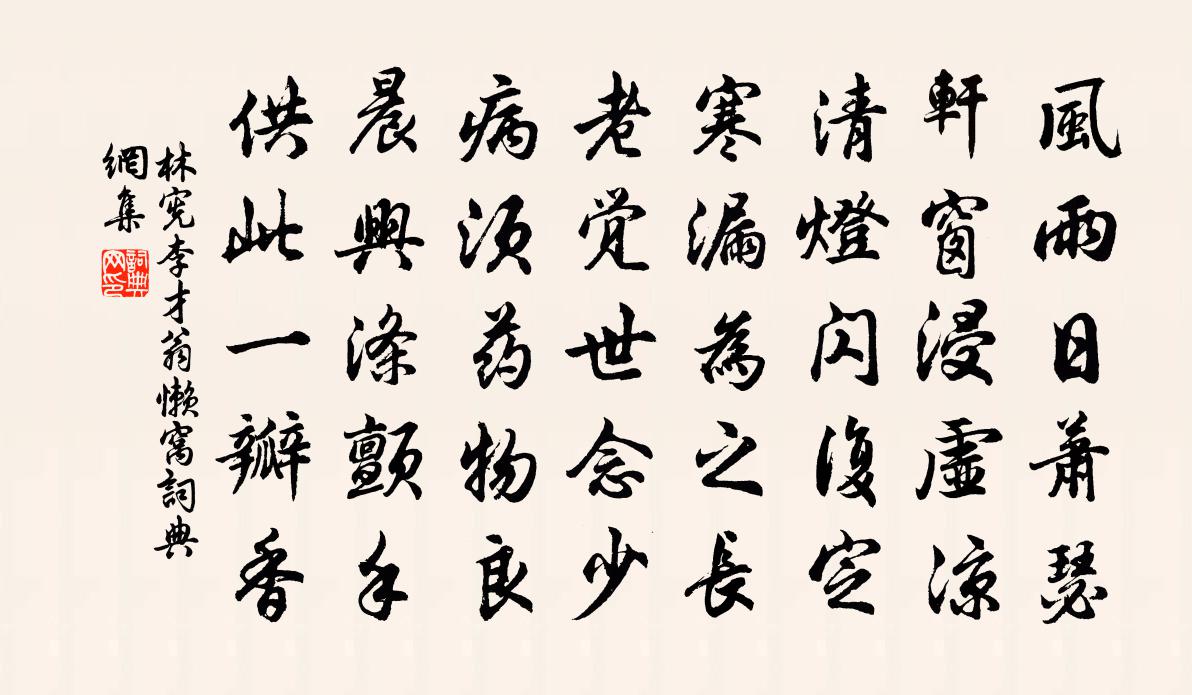 風雨日蕭瑟
軒窗浸虛涼
清燈闪復定
寒漏為之長
老觉世念少
病须药物良
晨興滌顫手
供此一瓣香
林宪李才翁懒窝詞典
網集
詞典
网印